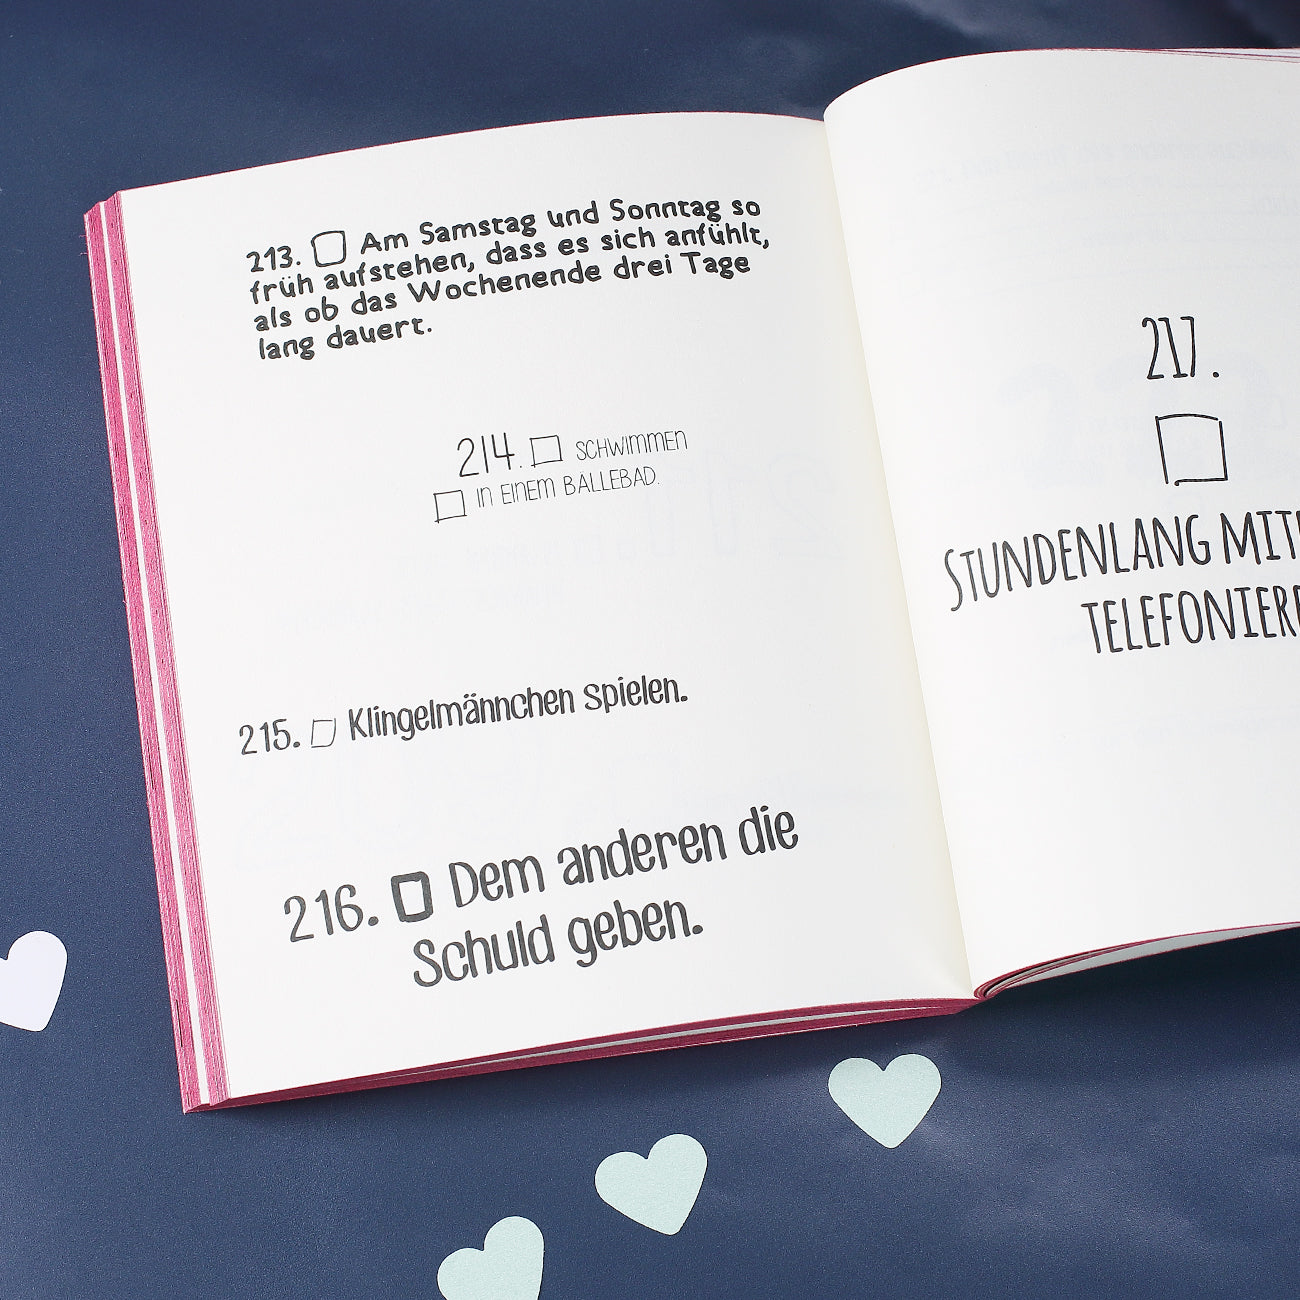 213. Am Samstag und Sonntag so
früh aufstehen, dass es sich anfühlt,
als ob das Wochenende drei Tage
lang dauert.
214. SCHWIMMEN
IN EINEM BÄLLEBAD.
215. Klingelmännchen spielen.
216. Dem anderen die
Schuld geben.
217.
STUNDENLANG MIT
TELEFONIERE